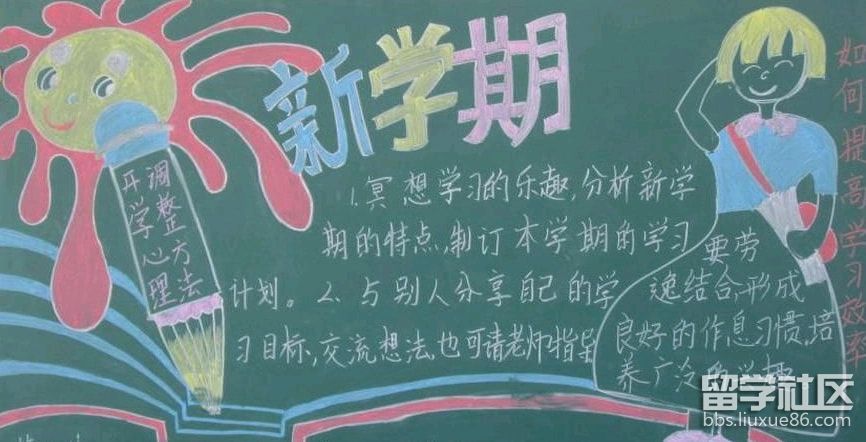 新学期
开学心理
调整方法
1.冥想学习的乐趣,分析新学
期的特点,制订本学期的学习
计划。2、与别人分享自己的学
习目标,交流想法,也可请老师指导
要劳
逸结合,形成
良好的作息习惯,培
养广泛的兴趣
如何提高学习效率
留学社区
bbs.liuxue86.com